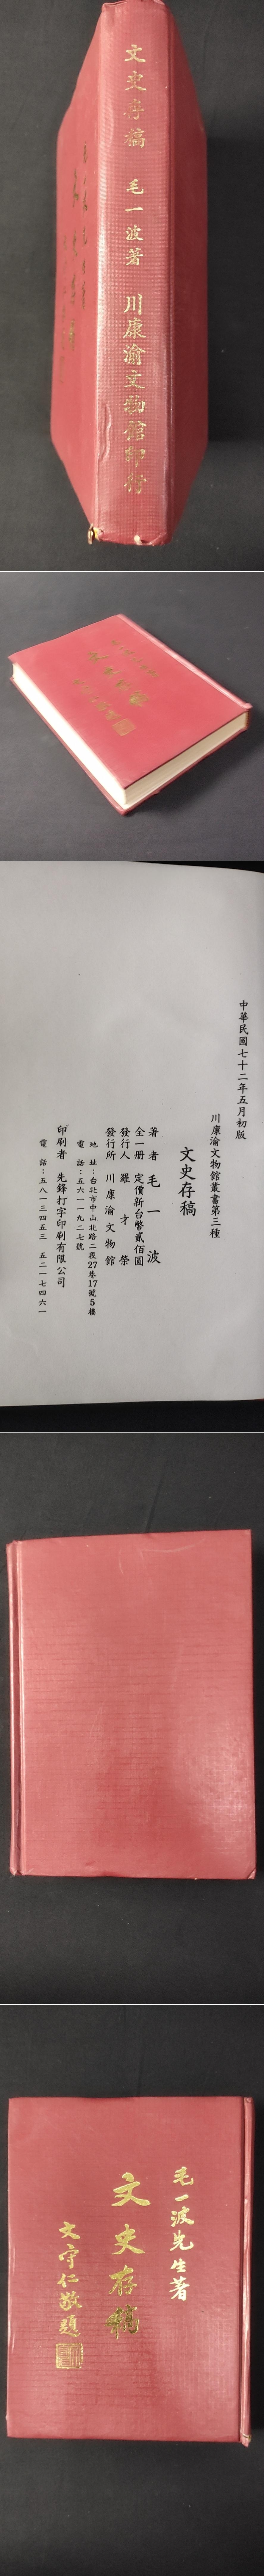 文史存稿 毛一波著 川康渝文物館印行
中華民國七十二年五月初版
川康渝文物館叢書第三種
文史存稿
著者 毛一波
全一册 定價新台幣貳佰圓
發行人 羅才榮
發行所 川康渝文物館
地址：台北市中山北路二段27巷17號5樓
電話：五六一一九二七號
印刷者 先鋒打字印刷有限公司
電話：五八一三四五三 五二一七四六一
毛一波先生著
文史存稿
文守仁敬題